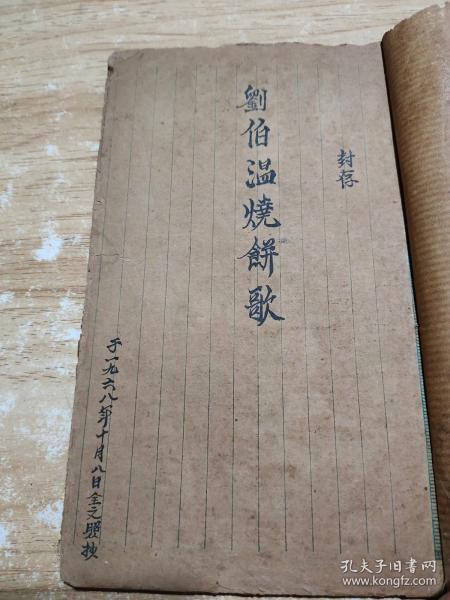 封存
劉伯温燒餅歌
于一九六八年十月八日全之照抄
孔夫子旧书网
www.kongfz.com